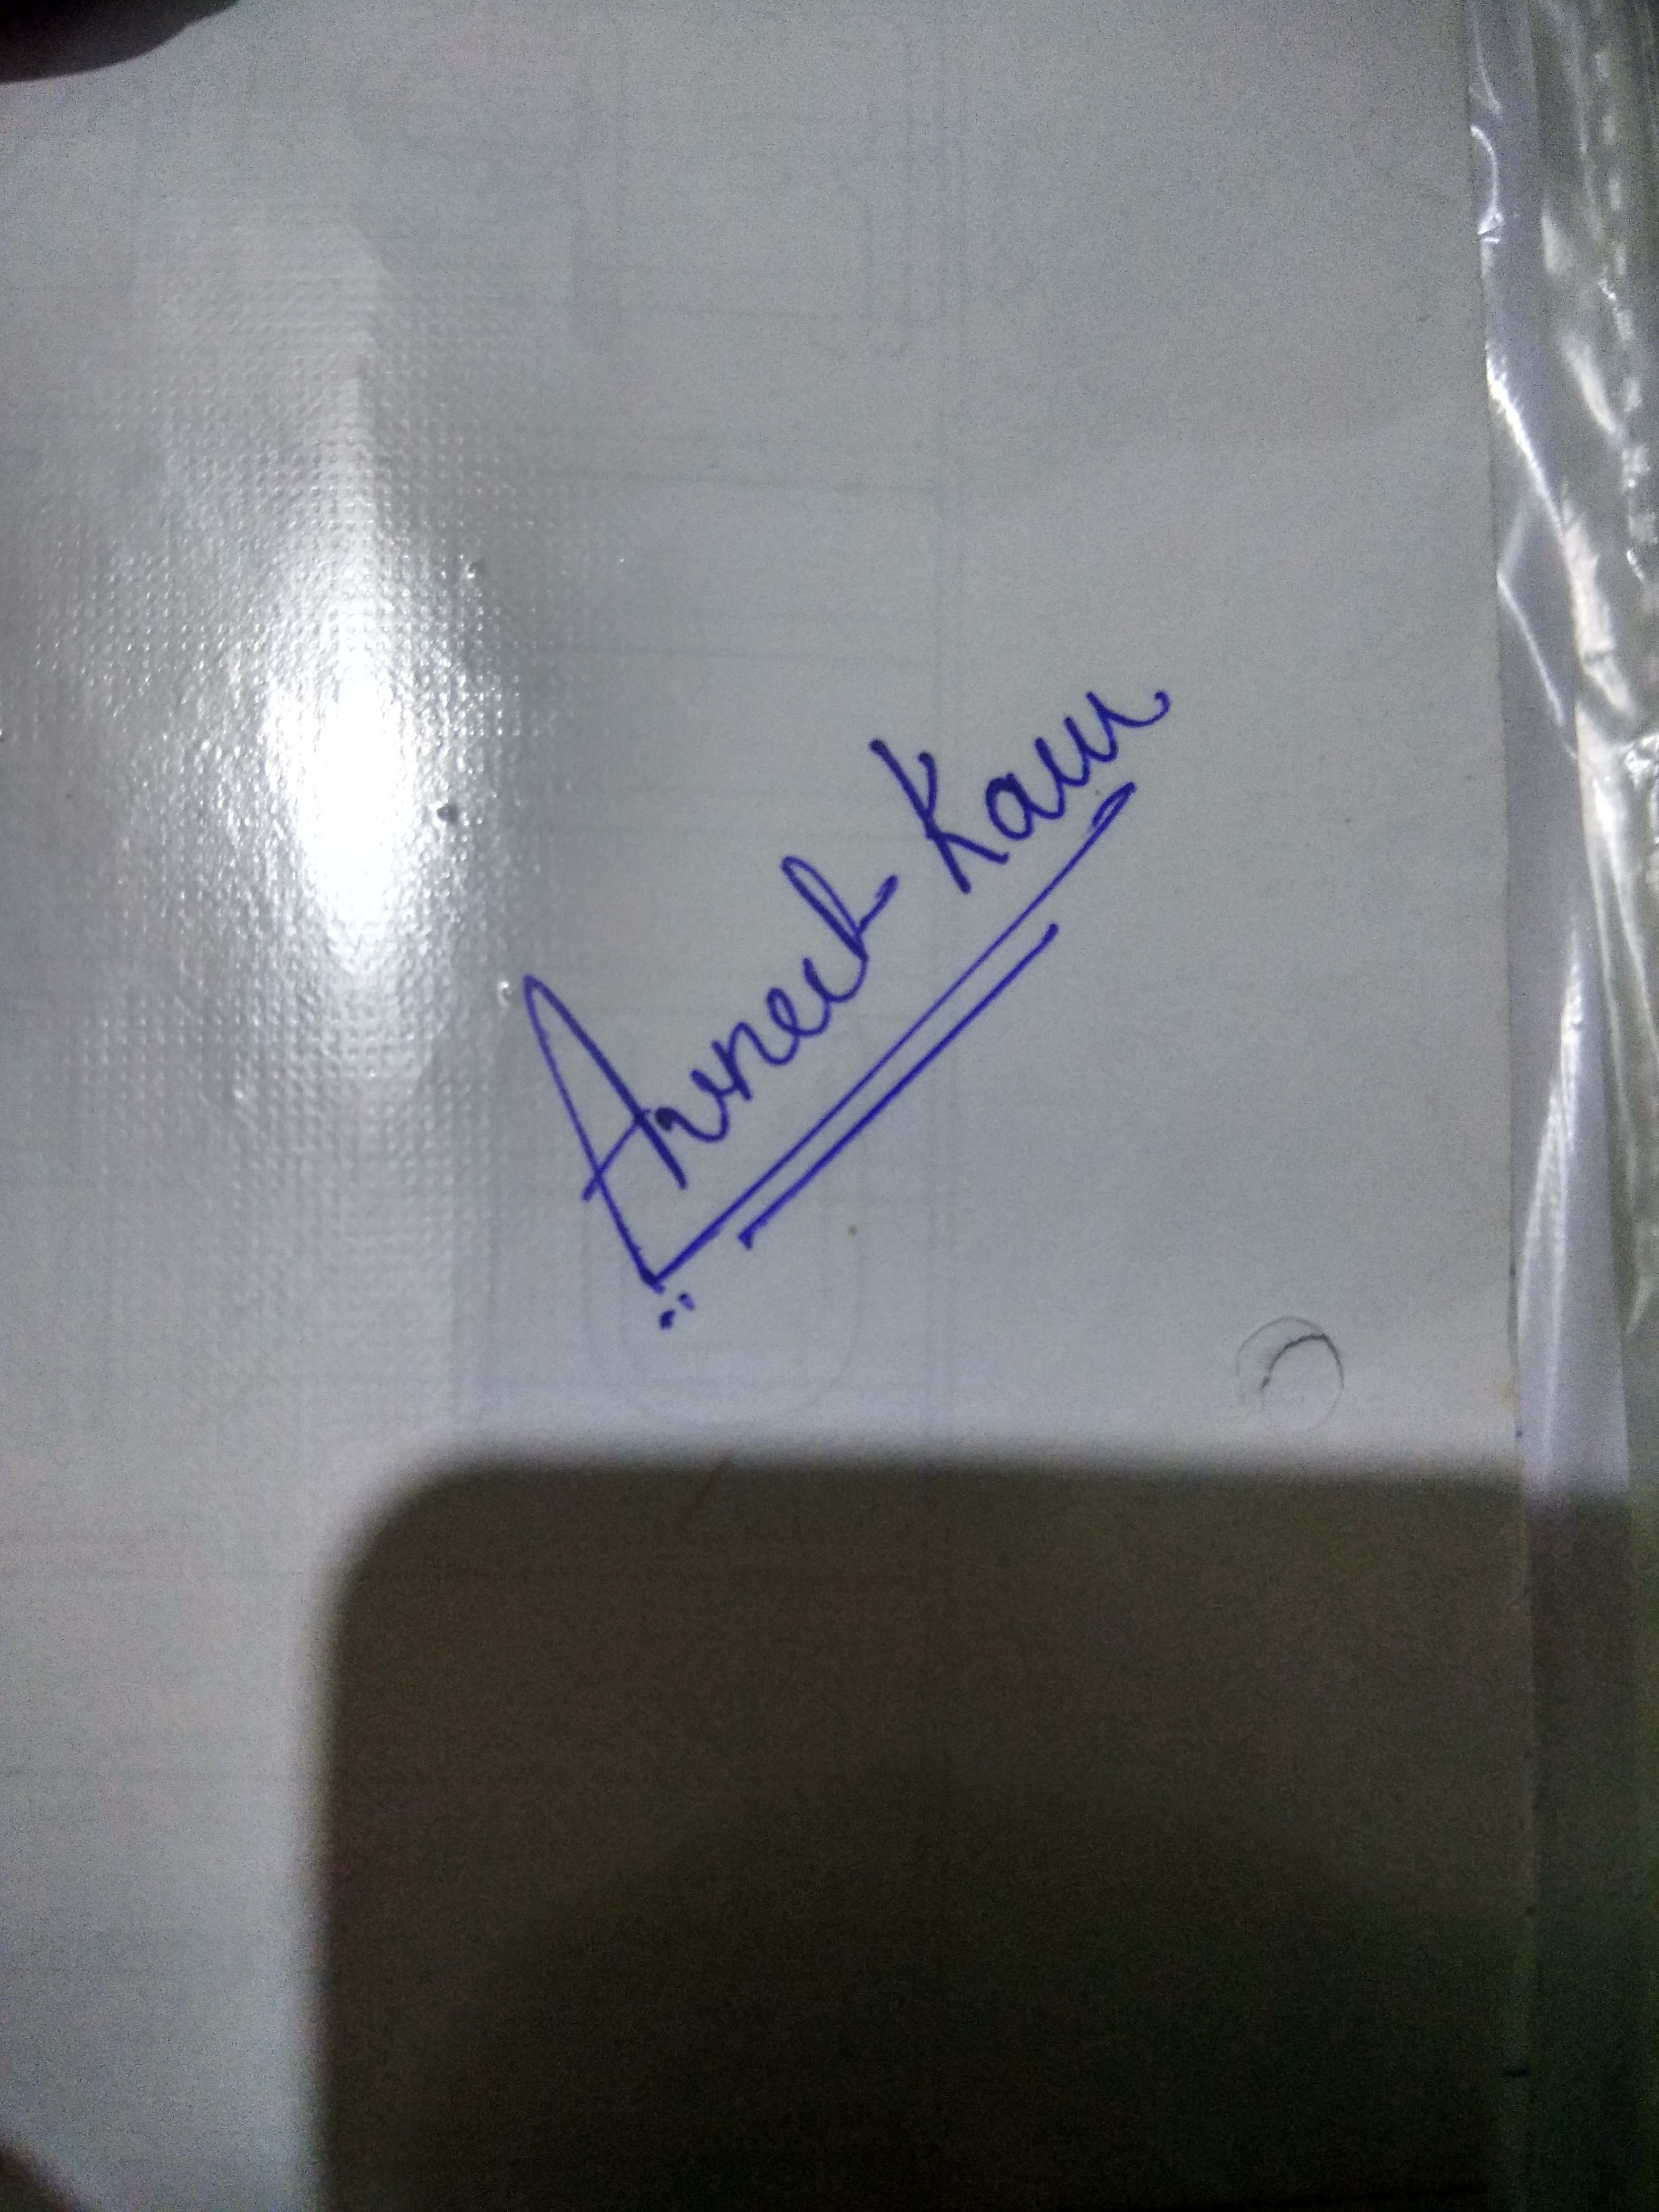 Avneet Kaur